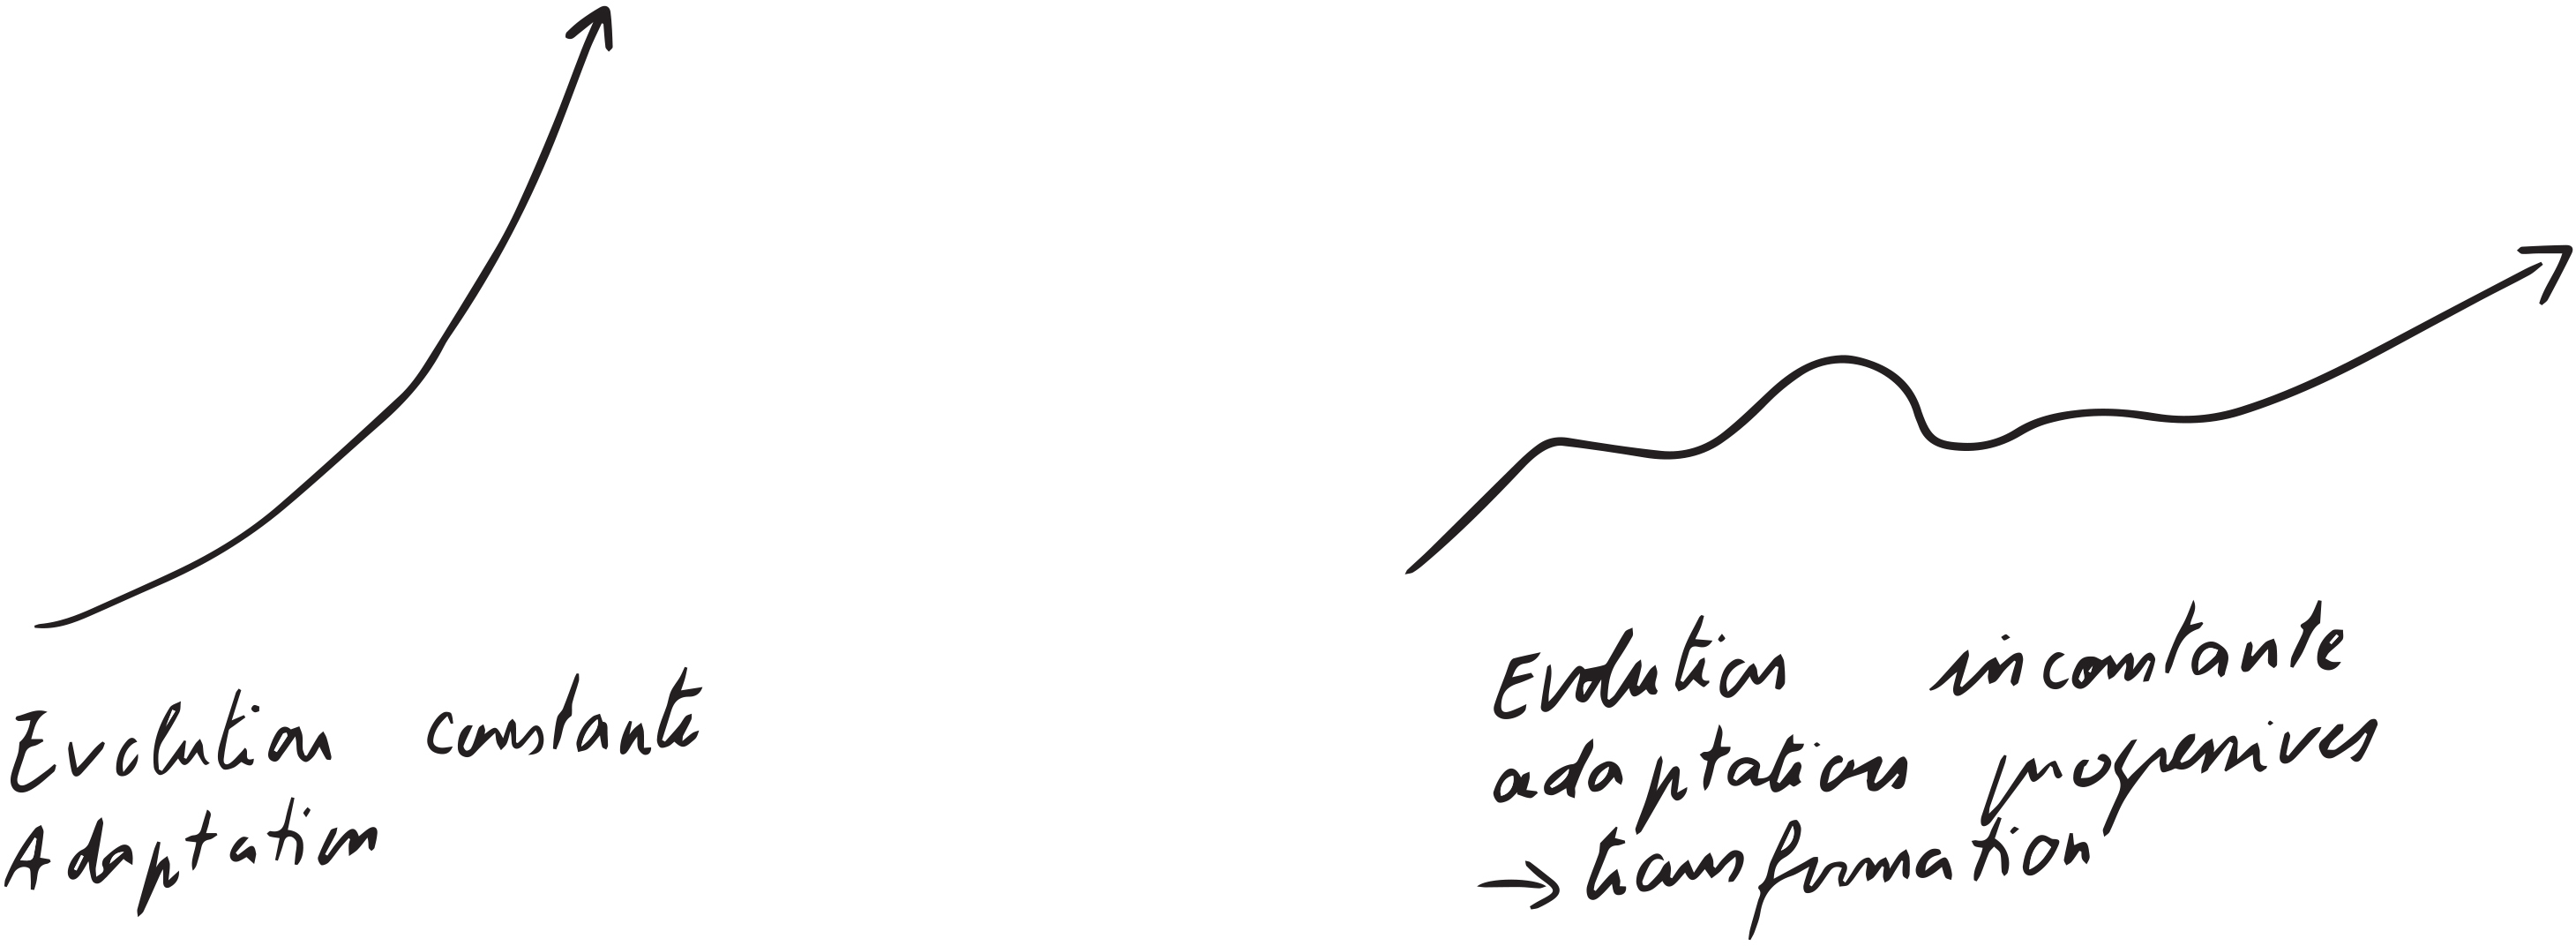 Evolution constante
Adaptation
Evolution inconstante
adaptations progressives
→ transformation